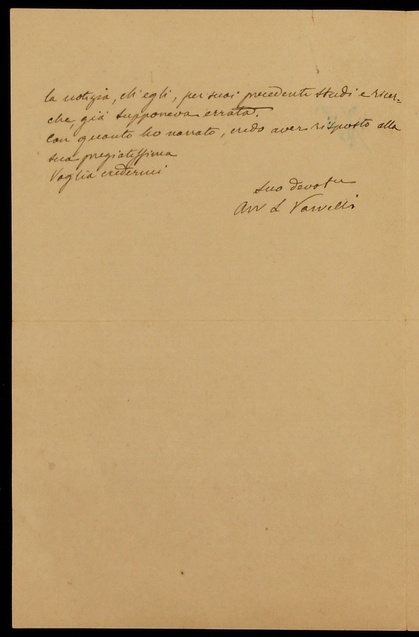 la notizia, ch'egli, per suoi precedenti studi e ricer-
che, già supponeva errata.
Con quanto ho narrato, credo aver risposto alla
sua pregiatissima
Voglia credermi
Suo devotu
Avv L Varvelli